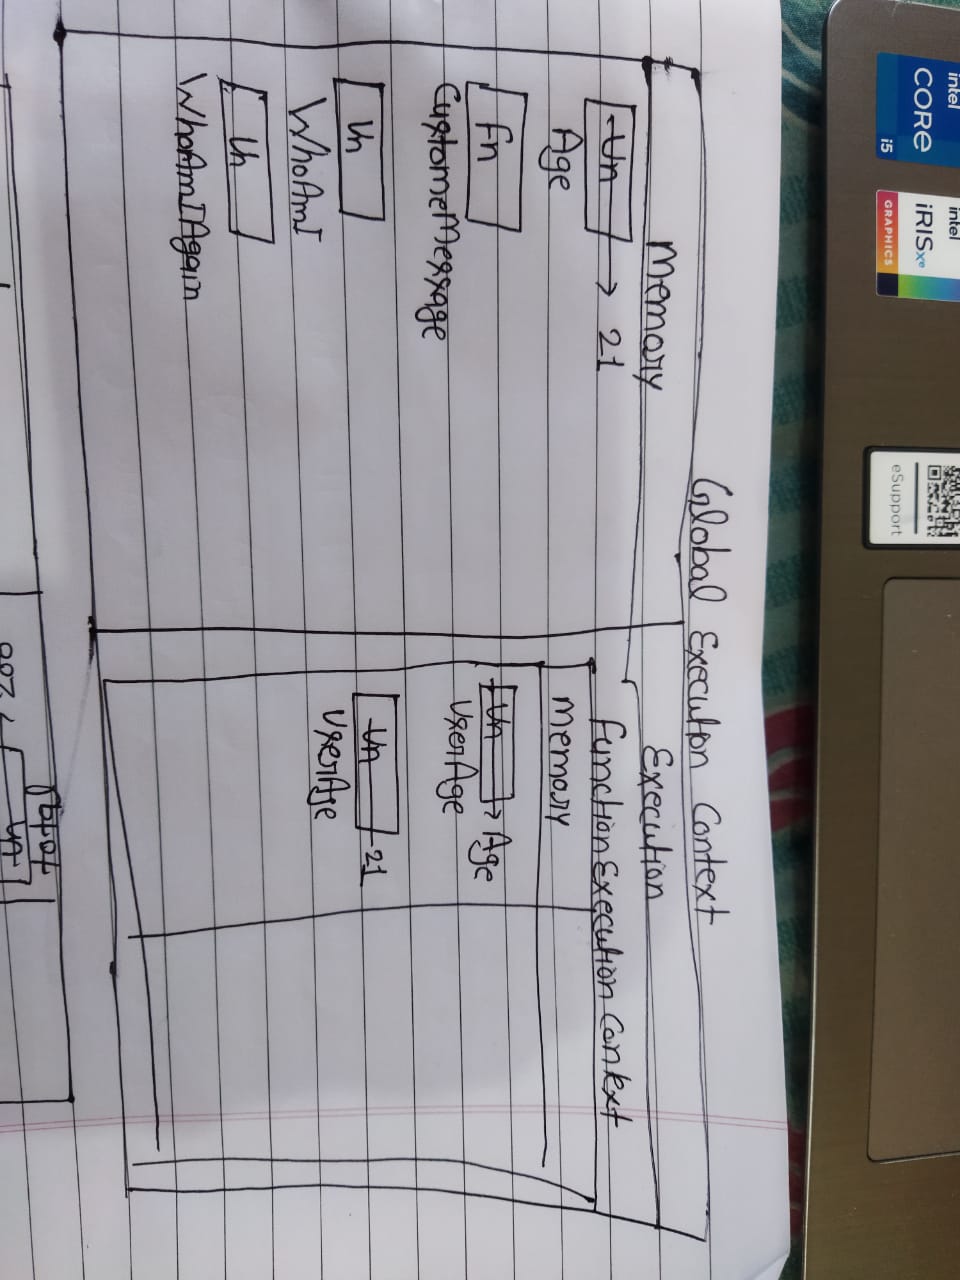 intel
CORE
i5
intel
iRISxe
GRAPHICS
eSupport
Global Execution Context
Memory
Execution
Un → 21
Age
Fn
CustomeMessage
Un
WhoAmI
Un
WhoAmIAgain
Function Execution Context
Memory
Un → Age
UserAge
Un 21
UserAge
total
Un
200